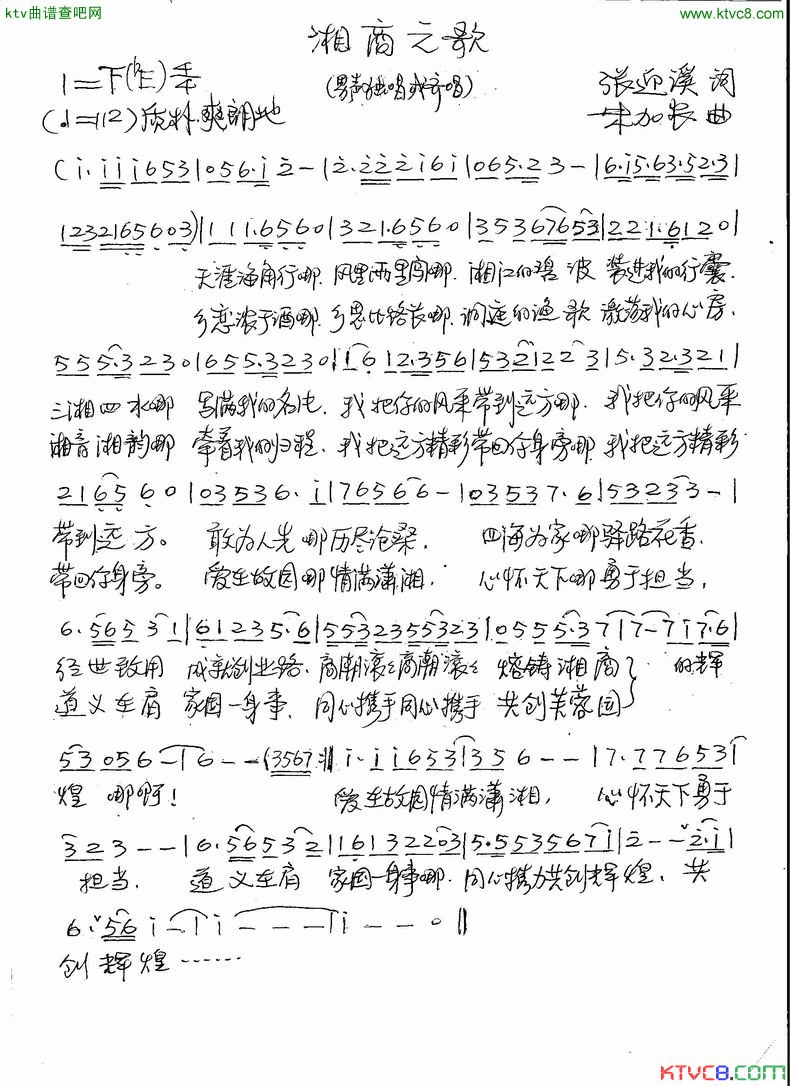 ktv曲谱查吧网
www.ktvc8.com
湘商之歌
1=F(♭E) 2/4
(男声独唱或齐唱)
张迎溪 词
(♩=112)质朴.爽朗地
加农 曲
(i. i i i 6 5 3 | 0 5 6. i 2 - | 2. 2 2 2 i 6 i | 0 6 5. 2 3 - | 6. i 5. 6 3. 5 2. 3 |
1 2 3 2 1 6 5 6 0 3) | 1 1 1. 6 5 6 0 | 3 2 1. 6 5 6 0 | 3 5 3 6 7 6 5 3 | 2 2 1 6 1 2 0 |
天涯海角行哪.风里雨里闯哪.湘江的碧波 装进我的行囊.
乡恋浓于酒哪.乡思比路长哪.洞庭的渔歌 激荡我的心房.
5 5 5 5. 3 2 3 0 | 6 5 5 5. 3 2 3 0 | 1 6 1 2. 3 5 6 | 5 3 2 1 2 2 3 | 5. 3 2. 3 2 1 |
三湘四水哪 写满我的名片.我把你的风采带到远方哪.我把你的风采
湘音湘韵哪 牵着我的归程.我把远方精彩带回你身旁哪.我把远方精彩
2 1 6 5 6 0 | 0 3 5 3 6. i | 7 6 5 6 6 - | 0 3 5 3 7. 6 | 5 3 2 3 3 - |
带到远方。 敢为人先哪历尽沧桑. 四海为家哪驿路花香.
带回你身旁。 爱在故园哪情满潇湘. 心怀天下哪勇于担当,
6. 5 6 5 3 1 | 6 1 2 3 5. 6 | 5 5 3 2 3 5 5 3 2 3 | 0 5 5 5. 3 7 | 7 - 7 i 7. 6 |
经世致用 成就创业路.商潮滚滚商潮滚滚 熔铸湘商 的辉
道义在肩 家国一身事.同心携手同心携手 共创芙蓉园
5 3 0 5 6 - | 6 - - (3 5 6 7 :‖ i. i i 6 5 3 | 3 5 6 - - | 7. 7 7 6 5 3 |
煌 哪啊! 爱在故园情满潇湘, 心怀天下勇于
3 2 3 - - | 6. 5 6 5 3 2 | 1 6 1 3 2 2 0 3 | 5. 5 5 3 5 6 7 i | 2 - - 2. i |
担当. 道义在肩 家国一身事哪.同心携力共创辉煌、共
6. 5 6 i - | i - - - | i - - 0 ‖
创辉煌……
KTVC8.com